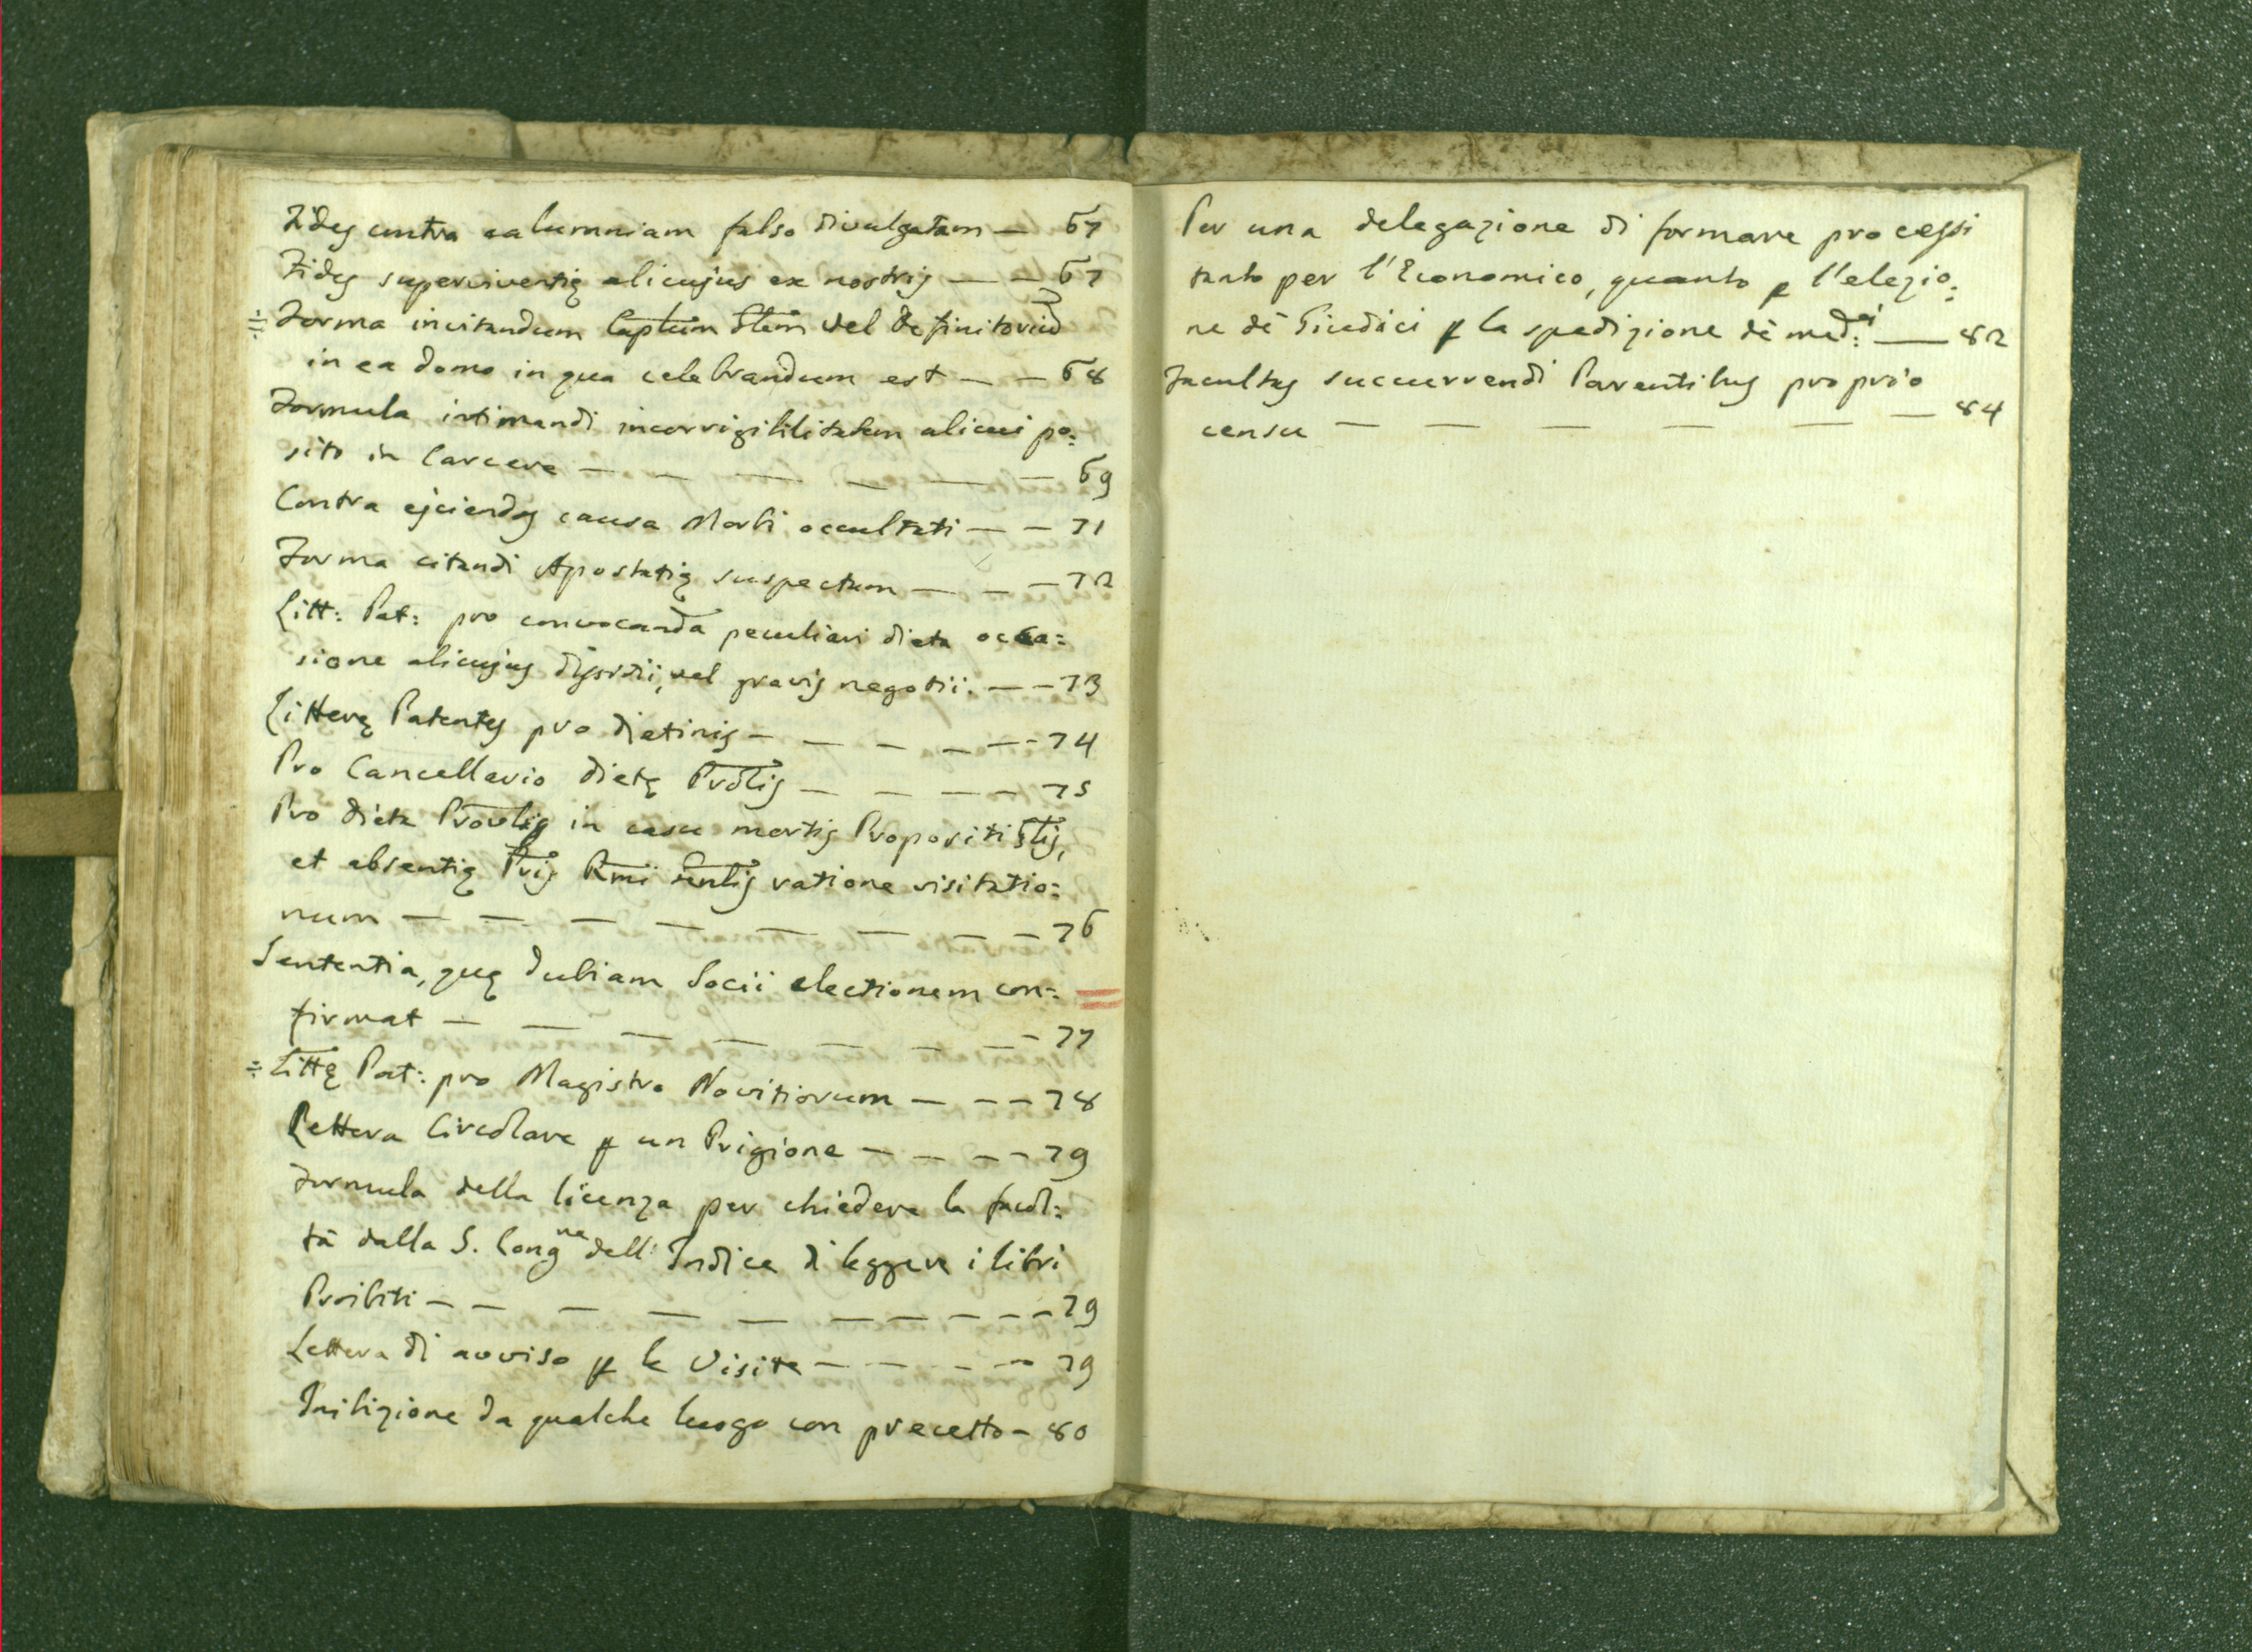 Fides contra calumniam falso divulgatam — 67
Fides superviventię alicujus ex nostris — — 67
÷ Forma invitandum Caplum Glem vel Definitoriũ
in ea domo in qua celebrandum est — — 68
Formula intimandi incorrigibilitatem alicui po:
sito in Carcere — — — — — — 69
Contra ejciendos causa Morbi occultati — — 71
Forma citandi Apostatię suspectum — — — 72
Litt: Pat: pro convocanda peculiari dieta occa:
sione alicujus disordii, vel gravis negotii. — — 73
Litterę Patentes pro dietinis — — — — — — 74
Pro Cancellario dietę Prõlis — — — — — 75
Pro dieta Provlis in casu mortis Propositi Glis,
et absentię Pris Rmi Gnlis ratione visitatio:
num — — — — — — — — 76
Sententia, quę dubiam Socii electionem con:
firmat — — — — — — — 77
÷ Littę Pat: pro Magistro Novitiorum — — — 78
Lettera Circolare p un Prigione — — — — 79
Formula della licenza per chiedere la facol:
tà dalla S. Congne dell' Indice di leggere i libri
Proibiti — — — — — — — — — — 79
Lettera di avviso p le Visite — — — — — 79
Inibizione da qualche luogo con precetto — 80
Per una delegazione di formare processi
tanto per l'Economico, quanto p l'elezio:
ne dè Giudici p la spedizione dè med:mi — 82
Facultas succurrendi Parentibus proprio
censu — — — — — — 84